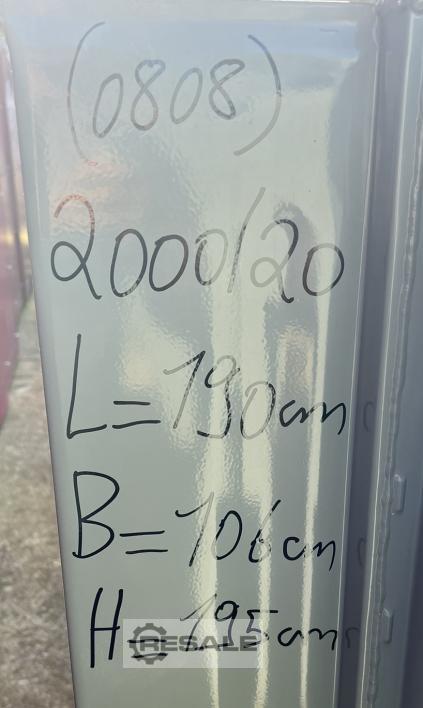 (0808)
2000/20
L=190cm
B=106cm
H=195cm
RESALE